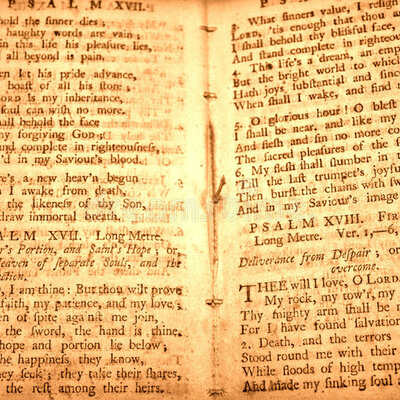 P S A L M XVII.
hold the sinner dies ;
haughty words are vain ;
in this life his pleasure lies,
all beyond is pain.
en let his pride advance,
boast of all his store ;
ORD is my inheritance,
soul can wish no more.
shall behold the face
my forgiving GOD ;
and complete in righteousness,
'd in my Saviour's blood.
re's a new heav'n begun
I awake from death,
the likeness of thy Son,
draw immortal breath.
ALM XVII. Long Metre.
r's Portion, and Saint's Hope ; or,
eaven of separate Souls, and the
ction.
, I am thine: But thou wilt prove
faith, my patience, and my love ;
en of spite against me join,
the sword, the hand is thine.
hope and portion lie below ;
the happiness they know,
they seek ; they take their shares,
the rest among their heirs.
P S
3. What sinners value, I resign
LORD, 'tis enough that thou ar
I shall behold thy blissful face,
And stand complete in righteou
4. This life's a dream, an emp
But the bright world to which
Hath joys substantial and since
When shall I wake, and find
5. O glorious hour! O blest
I shall be near, and like my
And flesh and sin no more co
The sacred pleasures of the s
6. My flesh shall slumber in
'Till the last trumpet's joyful
Then burst the chains with sw
And in my Saviour's image
PSALM XVIII. FIR
Long Metre. Ver. 1,—6,
Deliverance from Despair ; o
overcome.
THEE will I love, O LORD
My rock, my tow'r, my
Thy mighty arm shall be m
For I have found salvation
2. Death, and the terrors
Stood round me with their
While floods of high temp
And made my sinking soul a